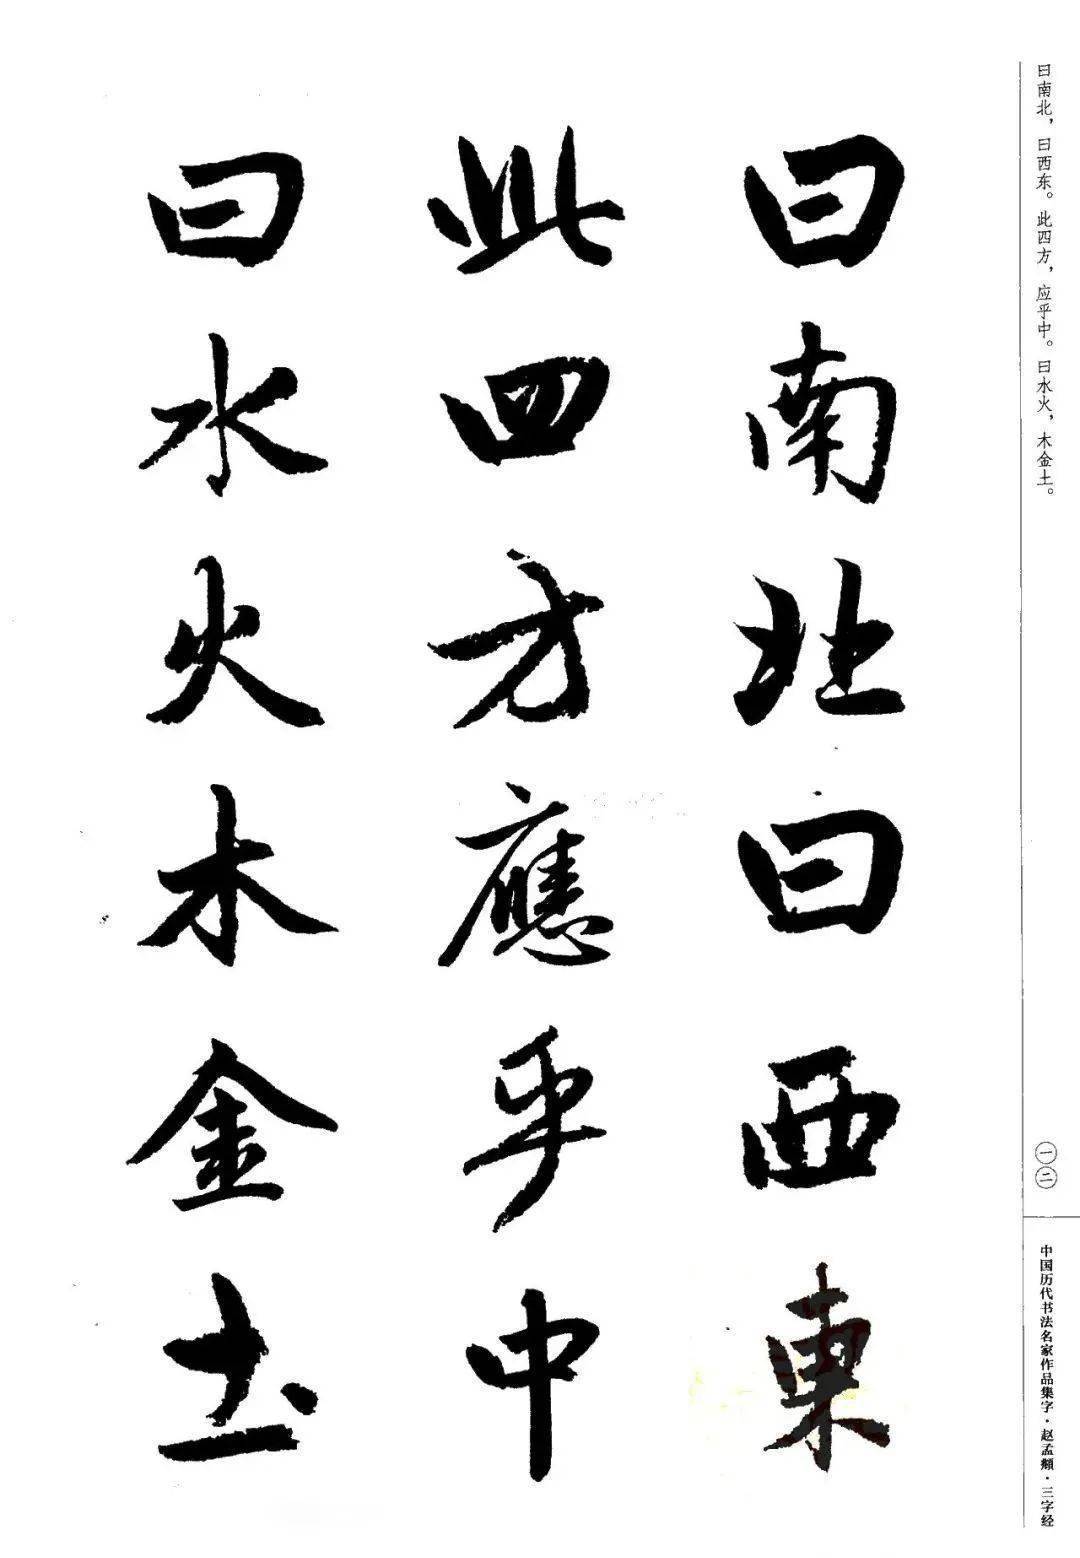 曰南北，曰西东。此四方，应乎中。曰水火，木金土。
曰南北曰西東
此四方應乎中
曰水火木金土
一二
中国历代书法名家作品集字·赵孟頫·三字经